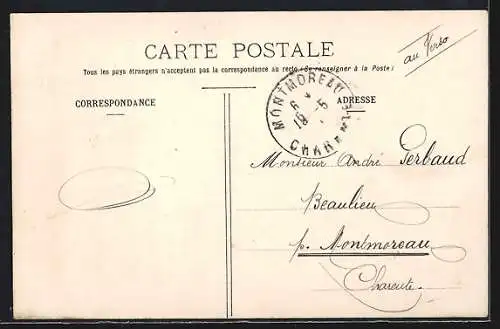 au Verso
CARTE POSTALE
Tous les pays étrangers n'acceptent pas la correspondance au recto (Se renseigner à la Poste)
CORRESPONDANCE
ADRESSE
MONTMOREAU
6 *
18 - 5
CHARENTE
Monsieur André Gerbaud
Beaulieu
p. Montmoreau
Charente.